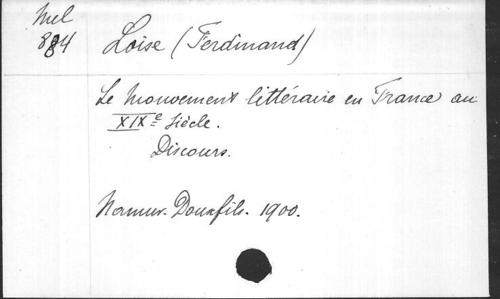 Mel
884
Loise (Ferdinand)
Le Mouvement littéraire en France au
XIXe siècle.
Discours.
Namur. Douxfils. 1900.